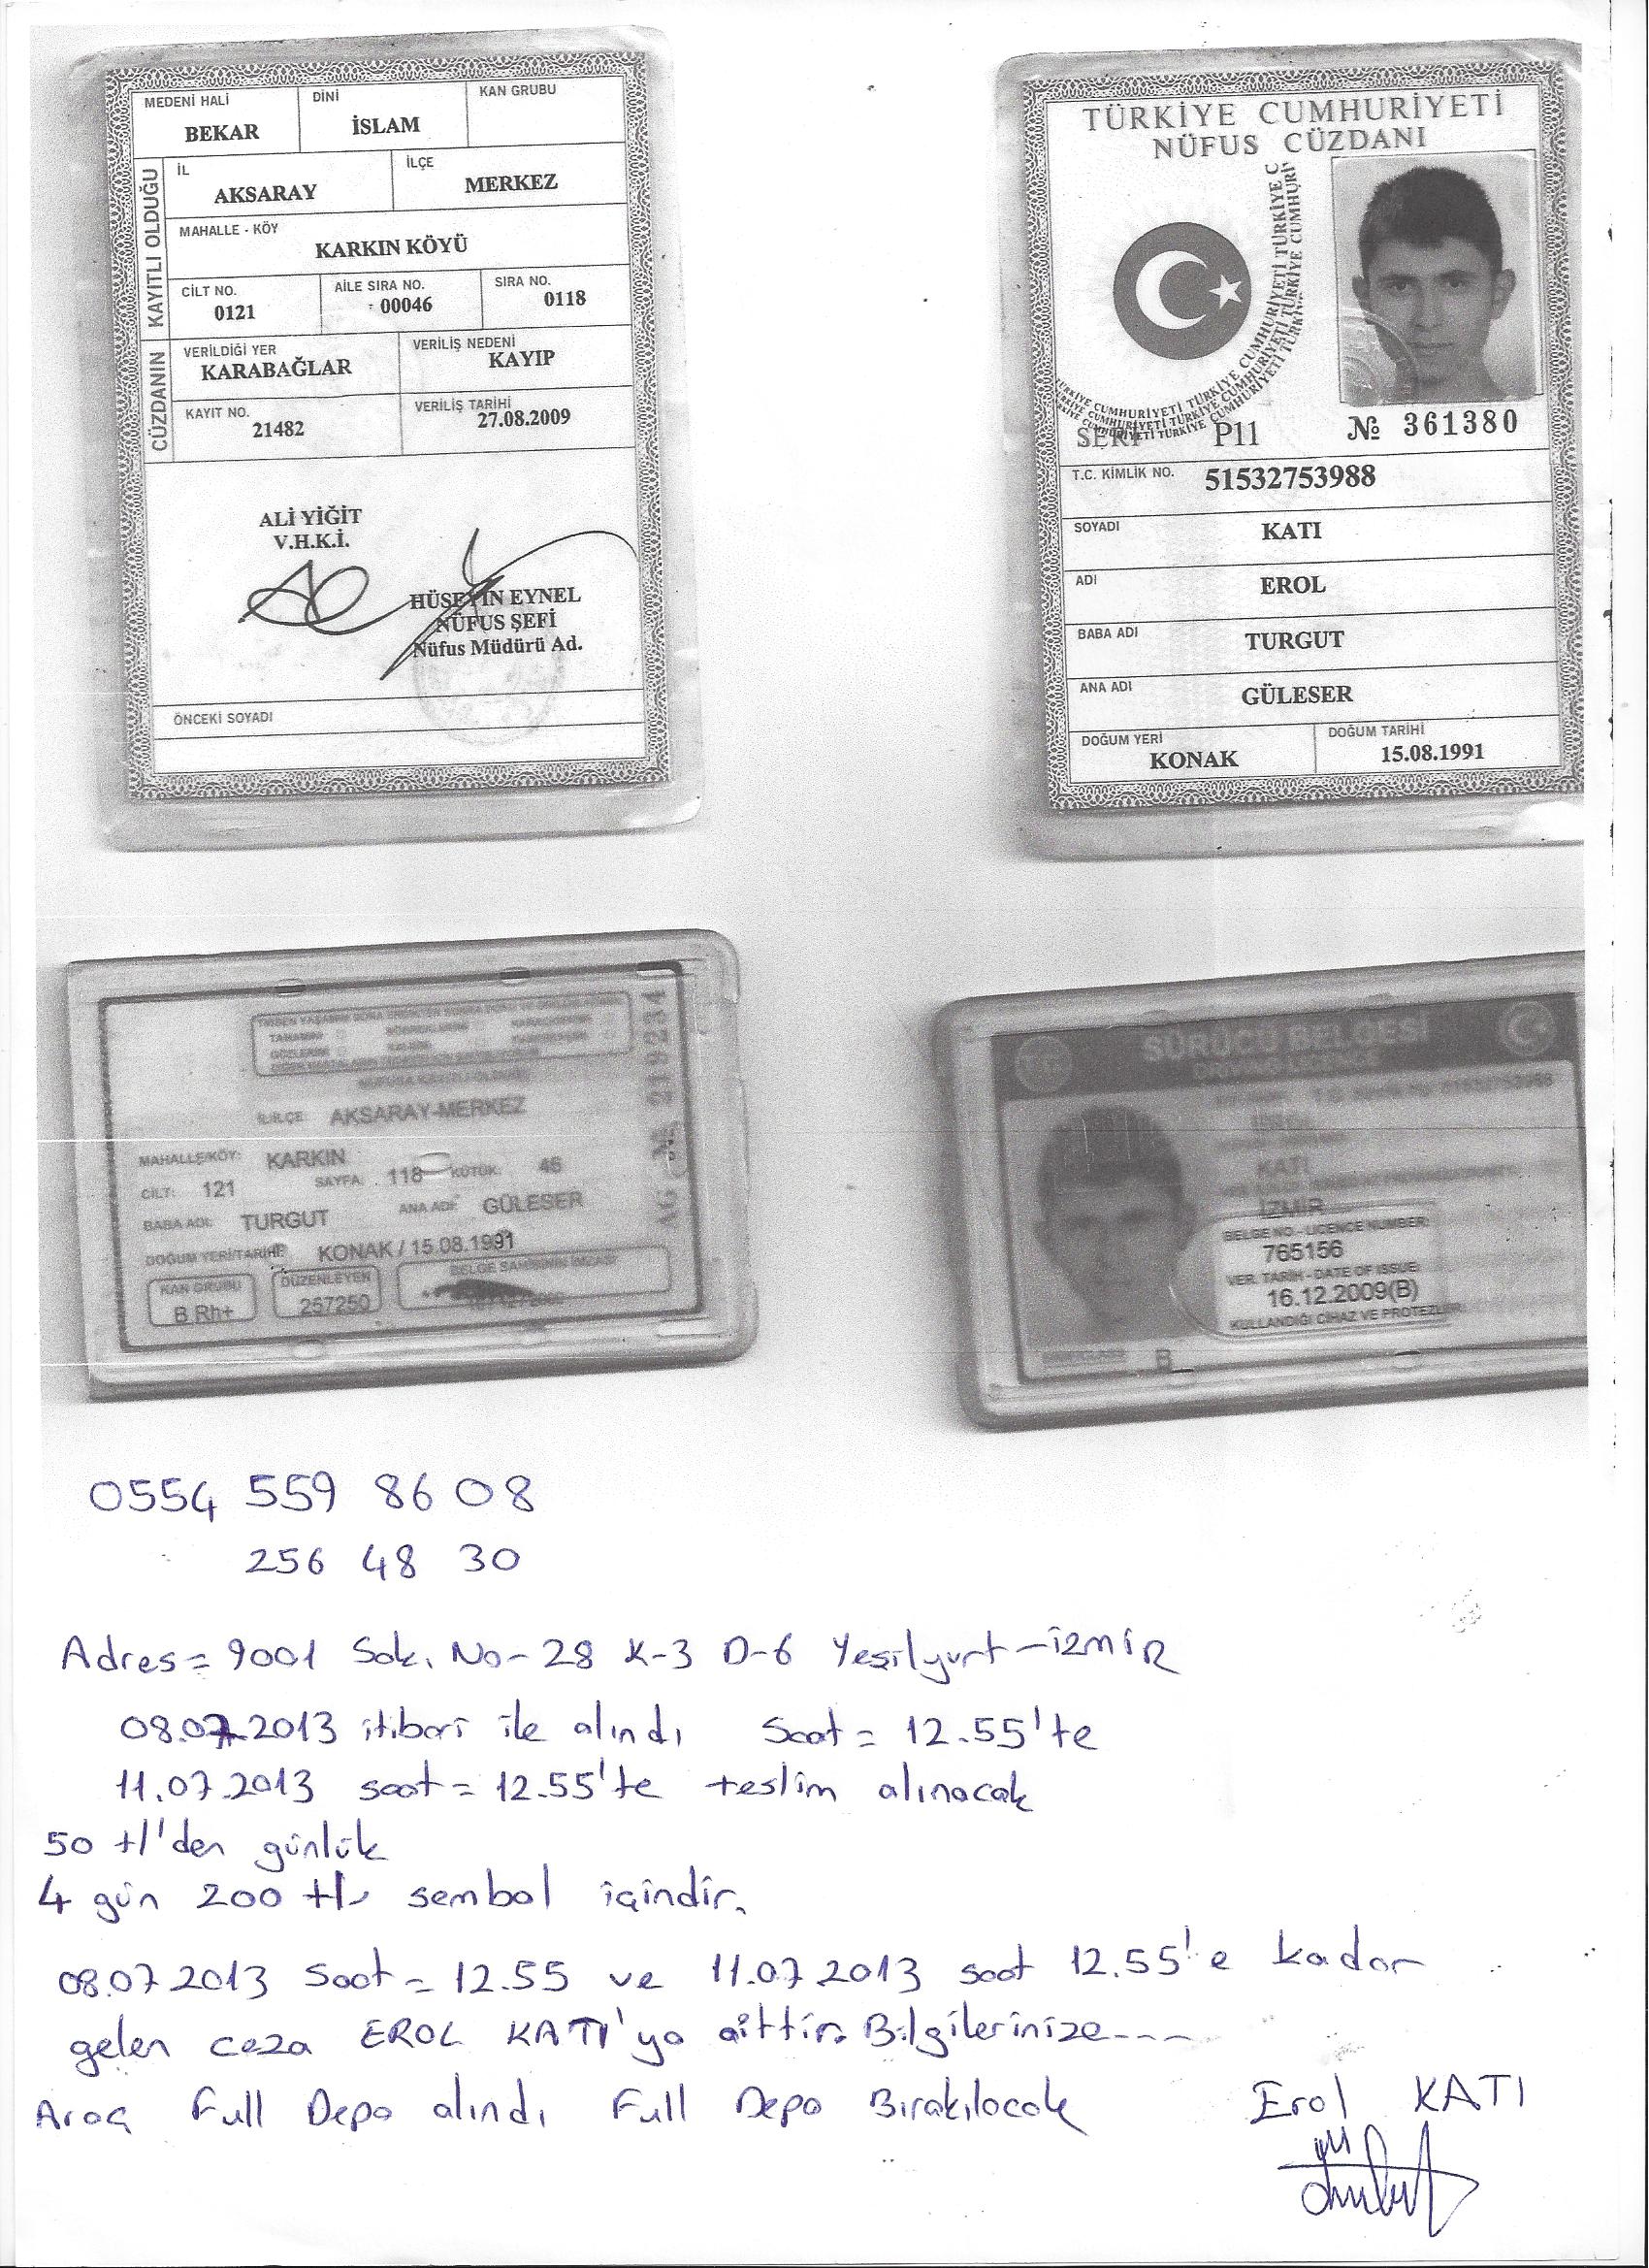 MEDENİ HALİ DİNİ KAN GRUBU
BEKAR İSLAM
CÜZDANIN KAYITLI OLDUĞU
İL İLÇE
AKSARAY MERKEZ
MAHALLE - KÖY
KARKIN KÖYÜ
CİLT NO. AİLE SIRA NO. SIRA NO.
0121 00046 0118
VERİLDİĞİ YER VERİLİŞ NEDENİ
KARABAĞLAR KAYIP
KAYIT NO. VERİLİŞ TARİHİ
21482 27.08.2009
ALİ YİĞİT
V.H.K.İ.
HÜSEYİN EYNEL
NÜFUS ŞEFİ
Nüfus Müdürü Ad.
ÖNCEKİ SOYADI
TÜRKİYE CUMHURİYETİ
NÜFUS CÜZDANI
SERİ P11 № 361380
T.C. KİMLİK NO. 51532753988
SOYADI KATI
ADI EROL
BABA ADI TURGUT
ANA ADI GÜLESER
DOĞUM YERİ DOĞUM TARİHİ
KONAK 15.08.1991
İL/İLÇE: AKSARAY-MERKEZ
MAHALLE/KÖY: KARKIN
CİLT: 121 SAYFA: 118 KÜTÜK: 46
BABA ADI: TURGUT ANA ADI: GÜLESER
DOĞUM YERİ/TARİHİ: KONAK / 15.08.1991
KAN GRUBU DÜZENLEYEN BELGE SAHİBİNİN İMZASI
B Rh+ 257250
SÜRÜCÜ BELGESİ
DRIVING LICENCE
KATI
İZMİR
BELGE NO - LICENCE NUMBER
765156
VER. TARİH - DATE OF ISSUE
16.12.2009(B)
KULLANDIĞI CİHAZ VE PROTEZLER
B
0554 559 86 08
256 48 30
Adres = 9001 Sok. No - 28 K-3 D-6 Yeşilyurt - İZMİR
08.07.2013 itibari ile alındı Saat = 12.55'te
11.07.2013 saat = 12.55'te teslim alınacak
50 tl'den günlük
4 gün 200 tl sembol içindir.
08.07.2013 Saat = 12.55 ve 11.07.2013 saat 12.55'e kadar
gelen ceza EROL KATI'ya aittir. Bilgilerinize ---
Araç Full Depo alındı Full Depo Bırakılacak Erol KATI